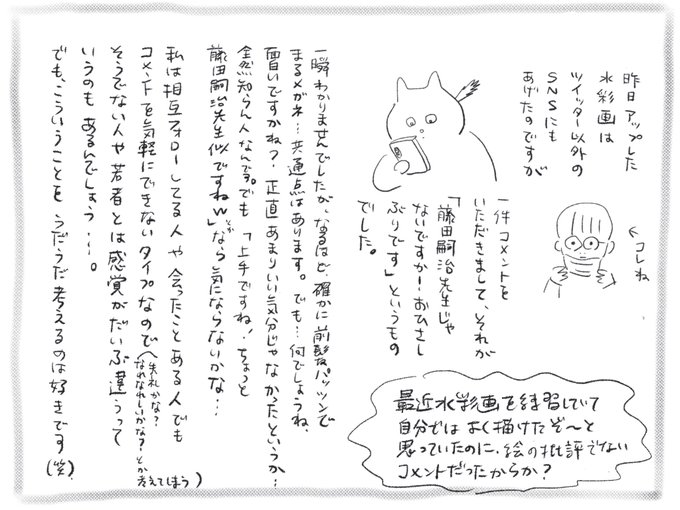 昨日アップした
水彩画は
ツイッター以外の
SNSにも
あげたのですが
←コレね
一件コメントを
いただきまして、それが
「藤田嗣治先生じゃ
ないですかー!おひさし
ぶりです」というもの
でした。
最近水彩画を練習していて
自分ではよく描けたぞ〜と
思っていたのに、絵の批評でない
コメントだったからか?
一瞬わかりませんでしたが、なるほど、確かに前髪パッツンで
まるメガネ…共通点はあります。でも…何でしょうね、
面白いですかね?正直あまりいい気分じゃなかったというか…
全然知らん人なんです。でも「上手ですね!ちょっと
藤田嗣治先生似ですねw」とかなら気にならないかな…
私は相互フォローしてる人や会ったことある人でも
コメントを気軽にできないタイプなので(失礼かな?
なれなれしいかな?とか
考えてしまう)
そうでない人や若者とは感覚がだいぶ違うって
いうのもあるんでしょう…。
でも、こういうことをうだうだ考えるのは好きです(笑)